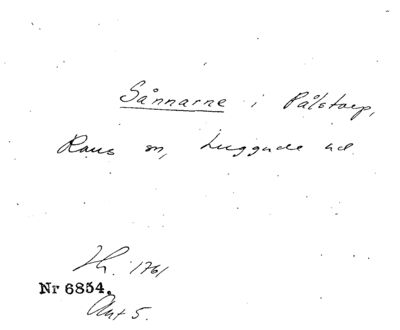 Sånnarne i Pålstorp,
Raus sn, Luggude hd
1761
Nr 6854.
Akt 5.